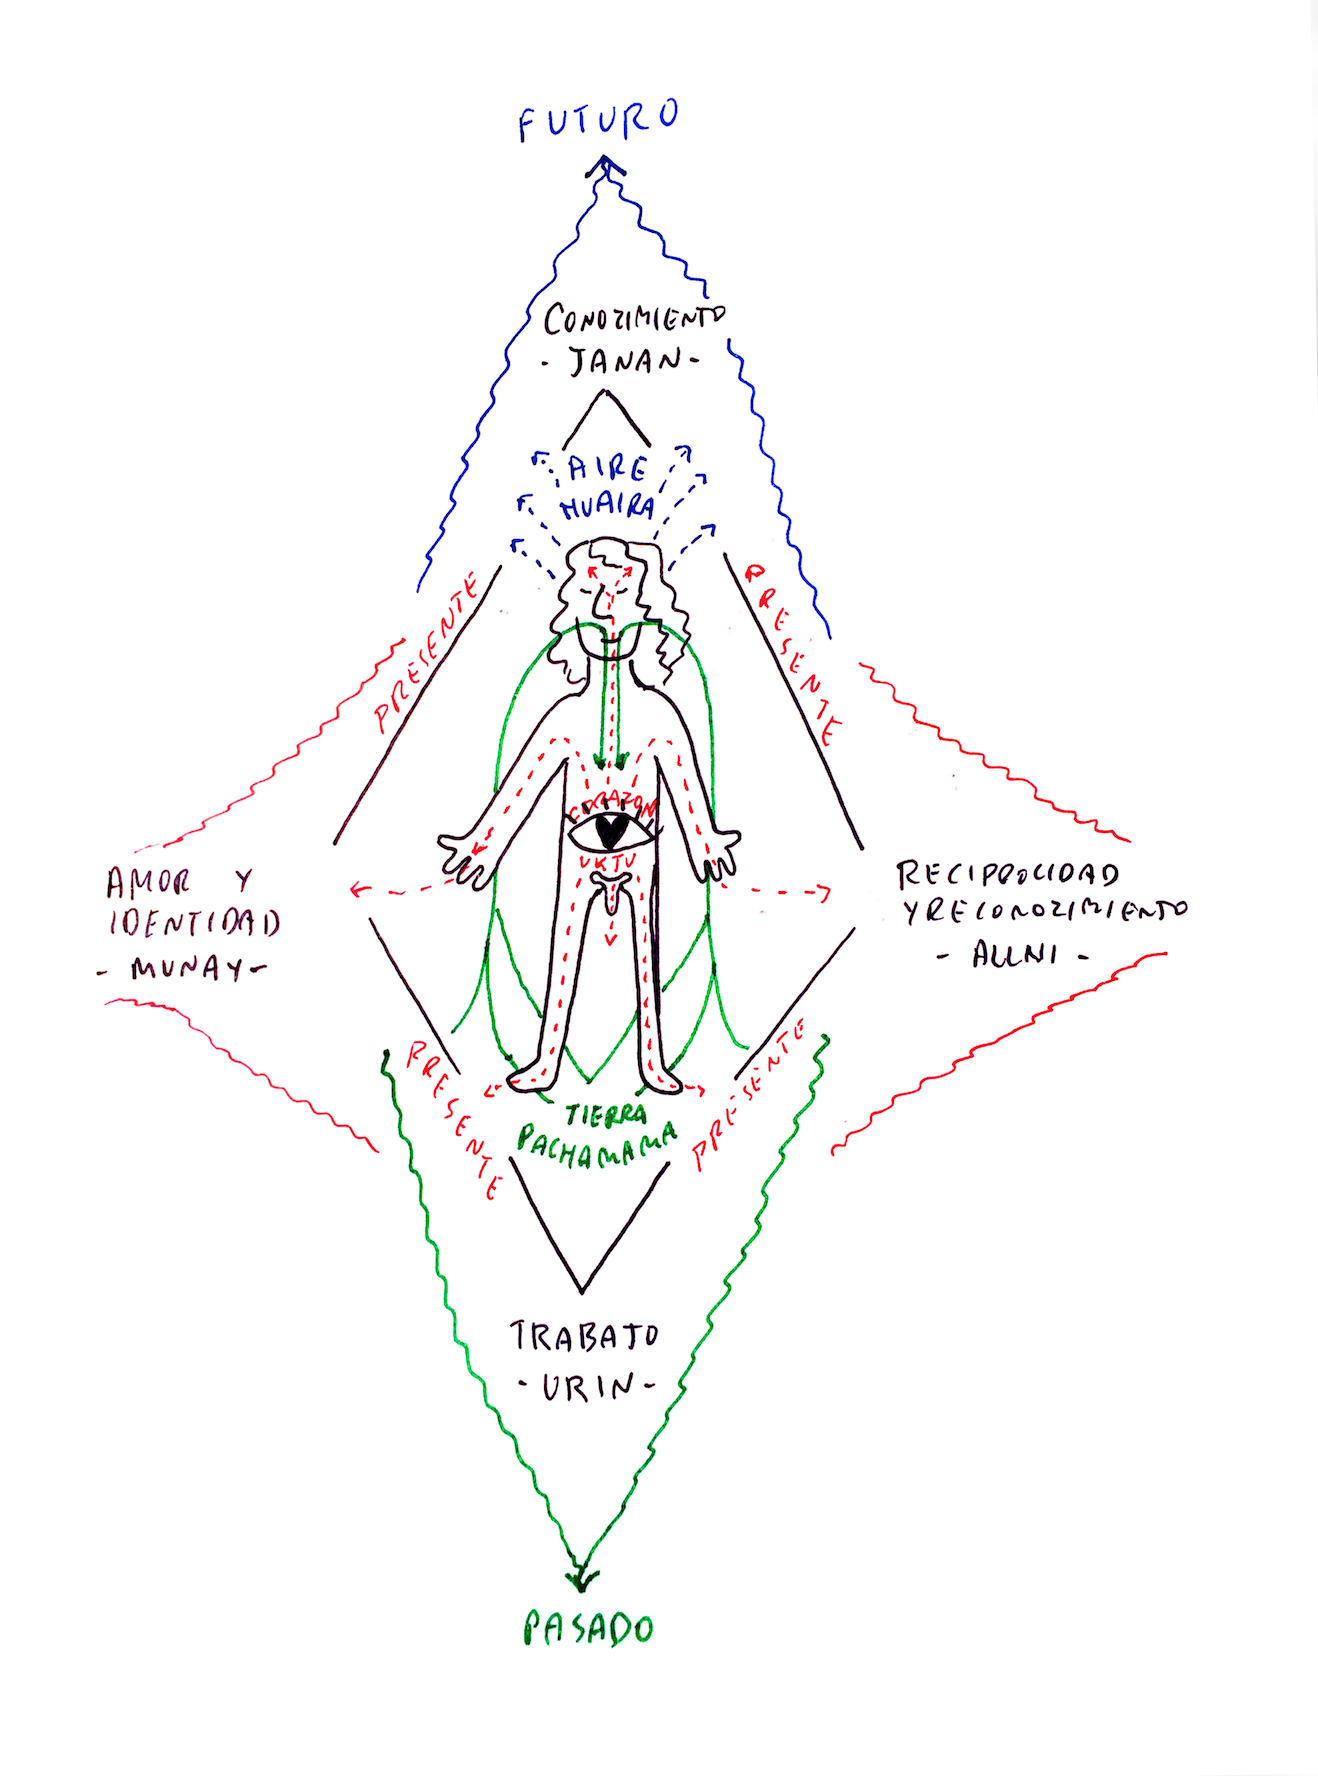 FUTURO
CONOZIMIENTO
- JANAN -
AIRE
HUAIRA
PRESENTE
PRESENTE
CORAZON
UKJU
AMOR Y
IDENTIDAD
- MUNAY -
RECIPROCIDAD
Y RECONOZIMIENTO
- ALLNI -
PRESENTE
PRESENTE
TIERRA
PACHAMAMA
TRABAJO
- URIN -
PASADO